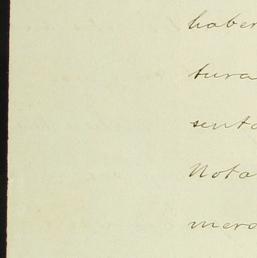 haber
tura
senta
Nota
merc